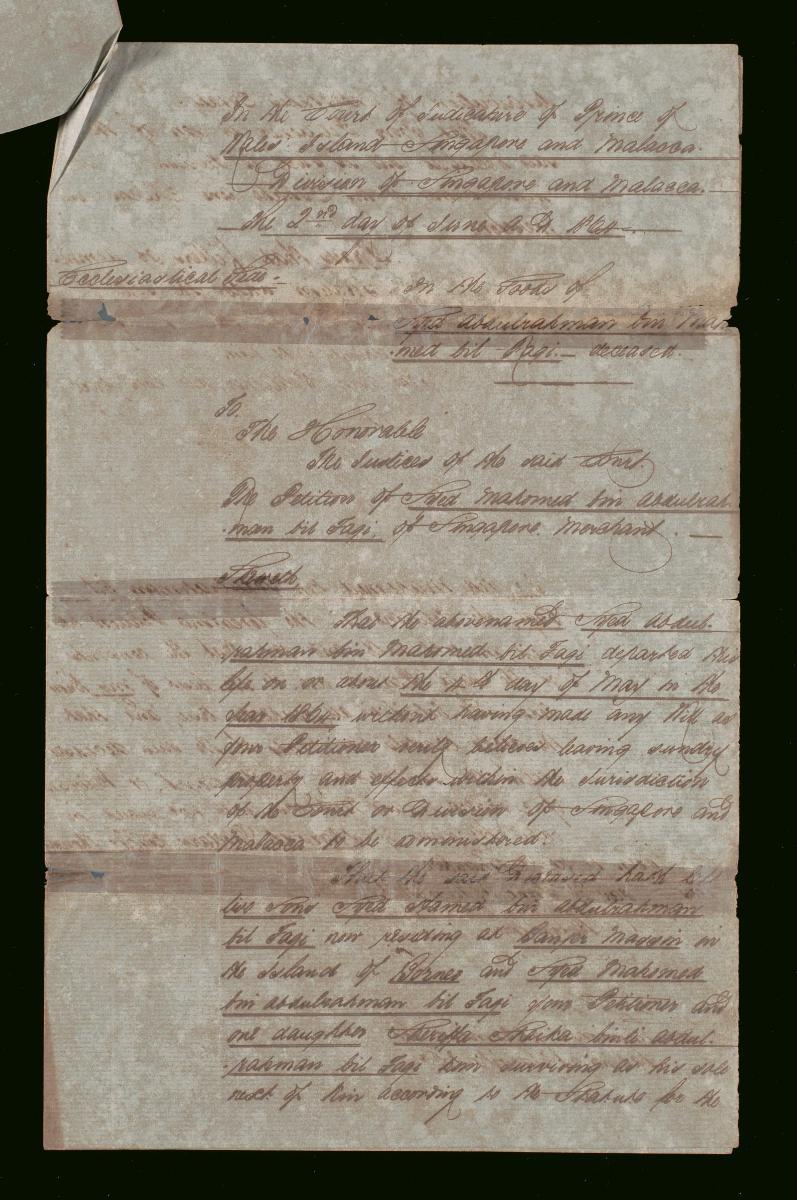 In the Court of Judicature of Prince of
Wales' Island Singapore and Malacca.
Division of Singapore and Malacca.
The 2nd day of June A.D. 1864
Ecclesiastical Side.
In the Goods of
Syed Abdulrahman bin Maho
med bil Fagi deceased.
To.
The Honorable
The Justices of the said Court
The Petition of Syed Mahomed bin Abdulrah
-man bil Fagi, of Singapore, Merchant.
Sheweth
That the abovenamed Syed Abdul-
rahman bin Mahomed bil Fagi departed this
life on or about the 4th day of May in the
year 1864 without having made any Will as
your Petitioner verily believes leaving sundry
property and effects within the Jurisdiction
of the Court or Division of Singapore and
Malacca to be administered.
That the said Deceased hath left
two sons Syed Ahamed bin Abdulrahman
bil Fagi now residing at Banjer Massin in
the Island of Borneo and Syed Mahomed
bin Abdulrahman bil Fagi your Petitioner and
one daughter Sheriffa binti Abdul-
-rahman bil Fagi him surviving as his sole
next of kin according to the Statute for the